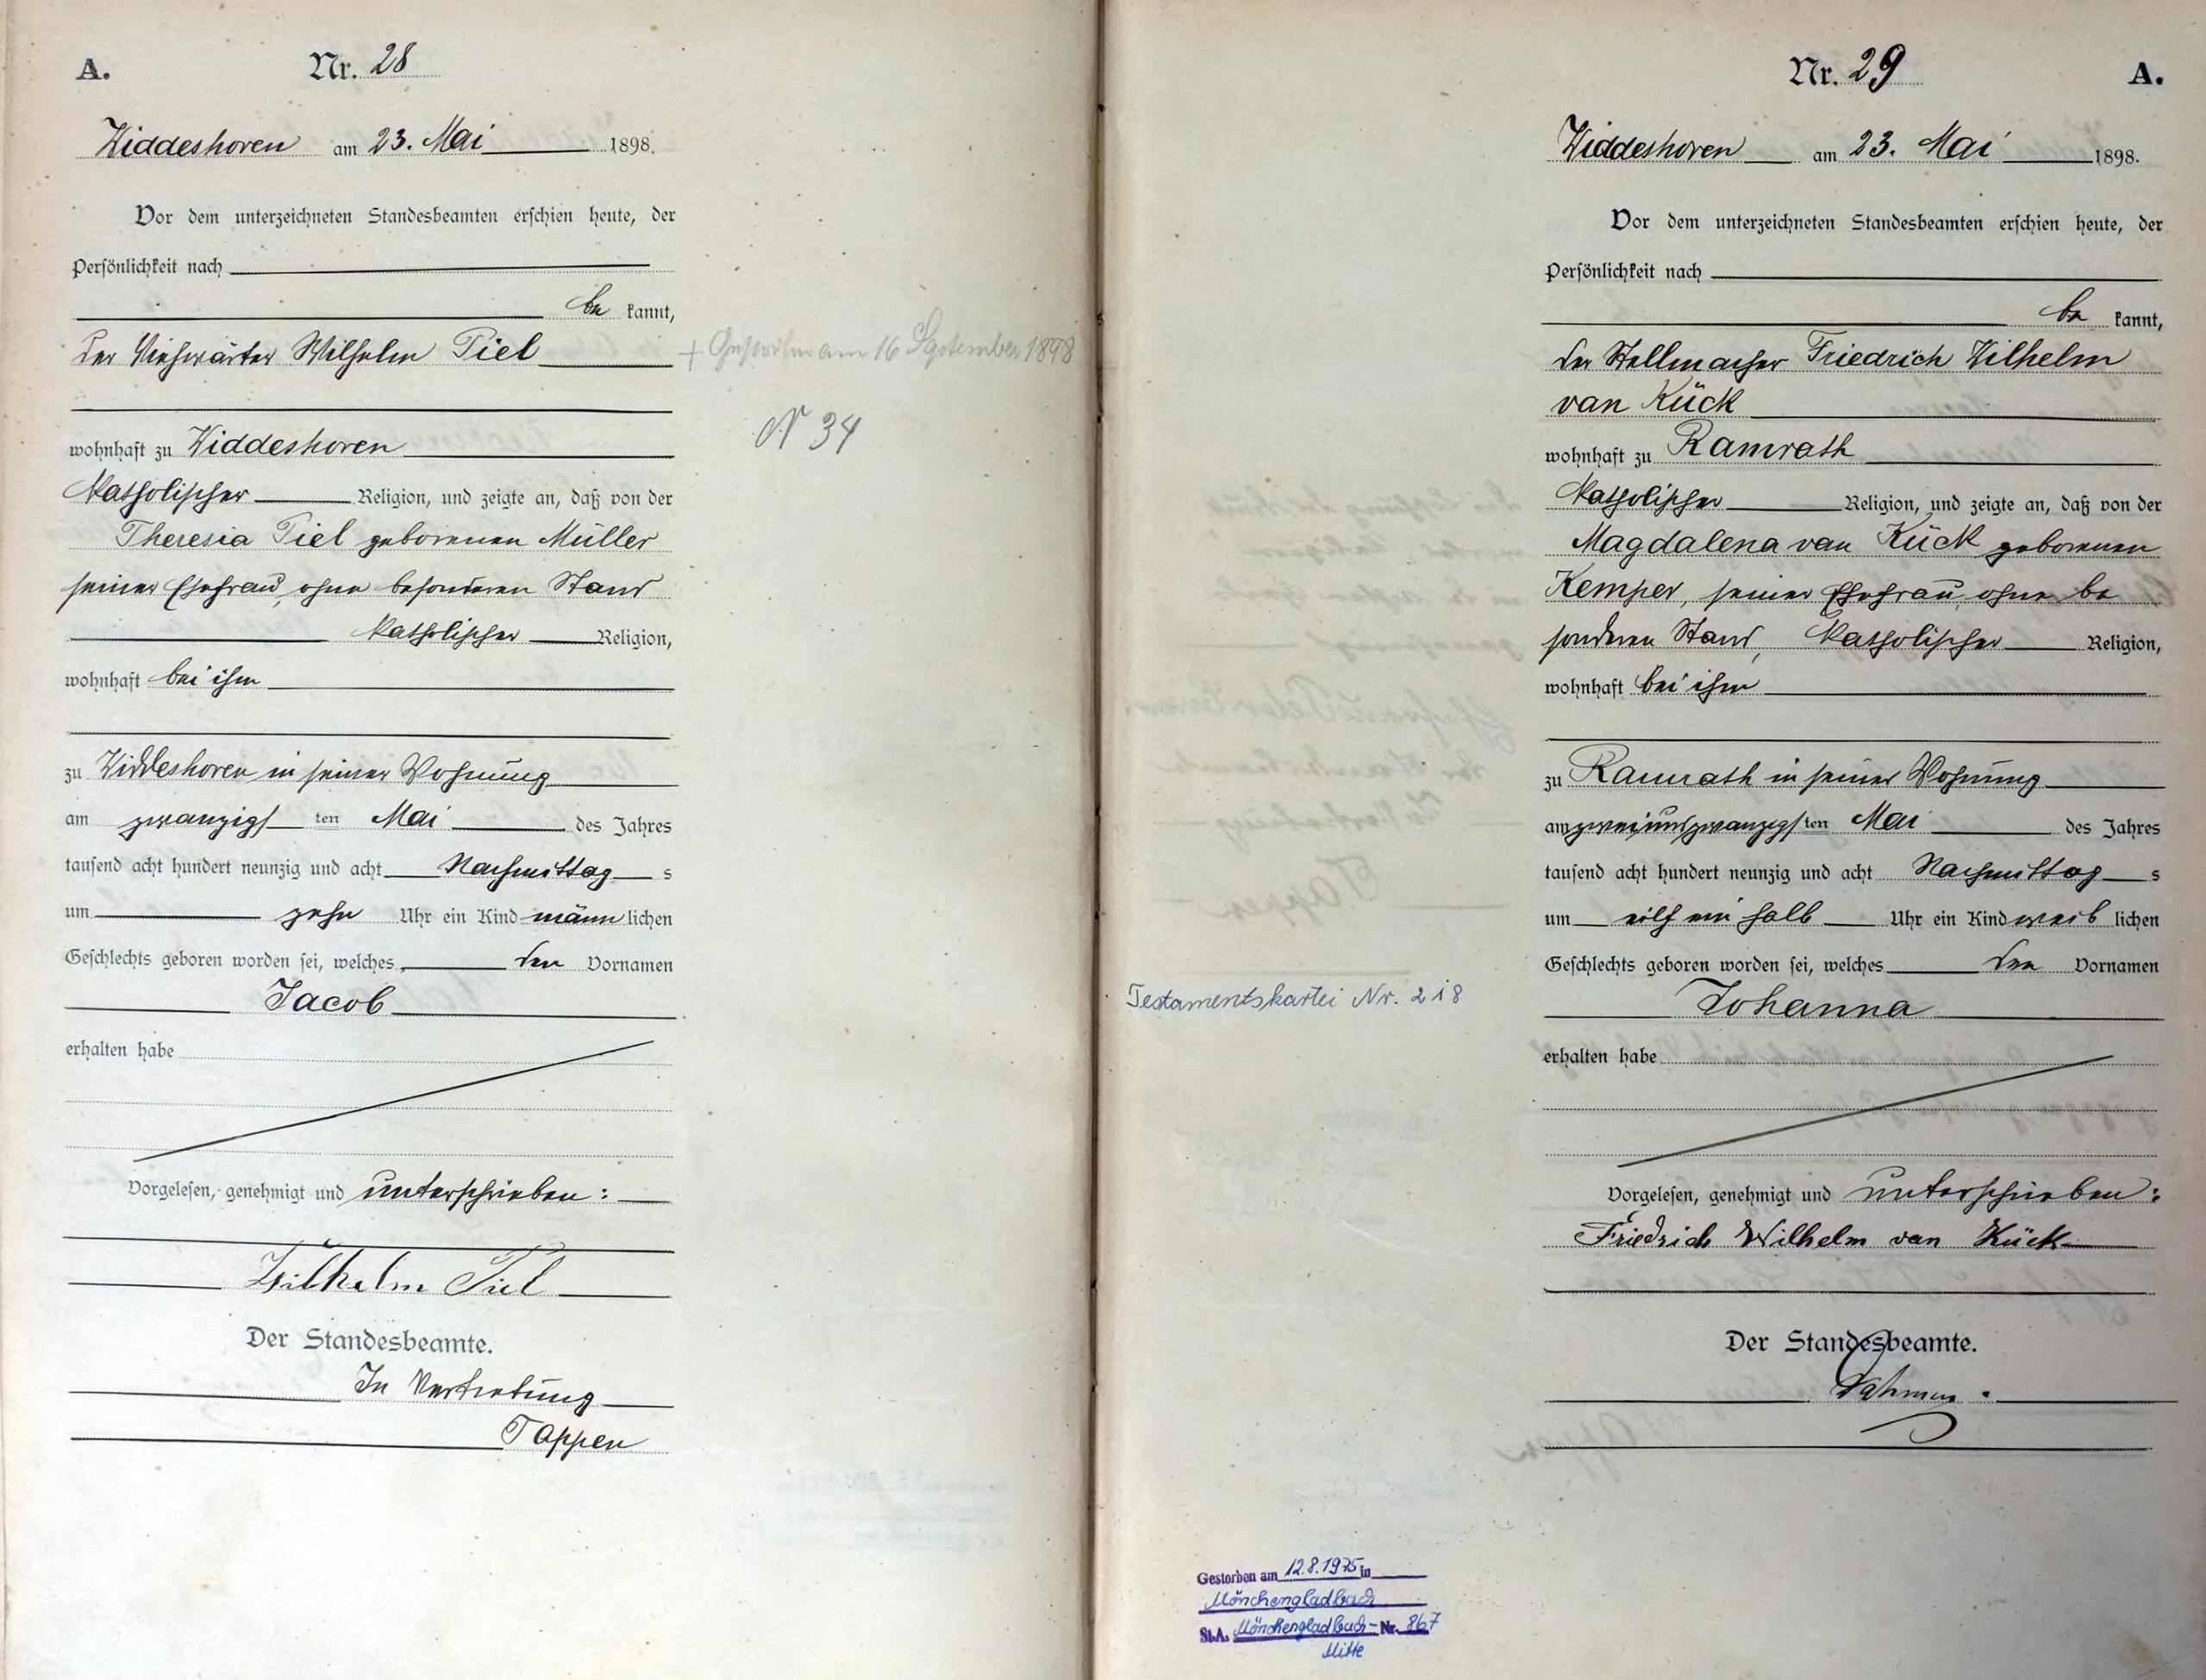 A.
Nr. 28
Widdeshoven am 23. Mai 1898.
Vor dem unterzeichneten Standesbeamten erschien heute, der
Persönlichkeit nach
be kannt,
der Viehwärter Wilhelm Piel
wohnhaft zu Widdeshoven
katholischer Religion, und zeigte an, daß von der
Theresia Piel geborenen Müller
seiner Ehefrau, ohne besonderen Stand
katholischer Religion,
wohnhaft bei ihm
zu Widdeshoven in seiner Wohnung
am zwanzigs ten Mai des Jahres
tausend acht hundert neunzig und acht Nachmittag s
um zehn Uhr ein Kind männ lichen
Geschlechts geboren worden sei, welches den Vornamen
Jacob
erhalten habe
Vorgelesen, genehmigt und unterschrieben:
Wilhelm Piel
Der Standesbeamte.
In Vertretung
Tappen
+ Gestorben am 16 September 1898
N 34
Nr. 29
A.
Widdeshoven am 23. Mai 1898.
Vor dem unterzeichneten Standesbeamten erschien heute, der
Persönlichkeit nach
be kannt,
der Stellmacher Friedrich Wilhelm
van Kück
wohnhaft zu Ramrath
katholischer Religion, und zeigte an, daß von der
Magdalena van Kück geborenen
Kemper, seiner Ehefrau, ohne be
sonderen Stand, katholischer Religion,
wohnhaft bei ihm
zu Ramrath in seiner Wohnung
am zweiundzwanzigs ten Mai des Jahres
tausend acht hundert neunzig und acht Nachmittag s
um eilf ein halb Uhr ein Kind weib lichen
Geschlechts geboren worden sei, welches den Vornamen
Johanna
erhalten habe
Vorgelesen, genehmigt und unterschrieben:
Friedrich Wilhelm van Kück
Der Standesbeamte.
Testamentskartei Nr. 218
Gestorben am 12.8.1975 in
Mönchengladbach
St.A. Mönchengladbach- Nr. 867
Mitte